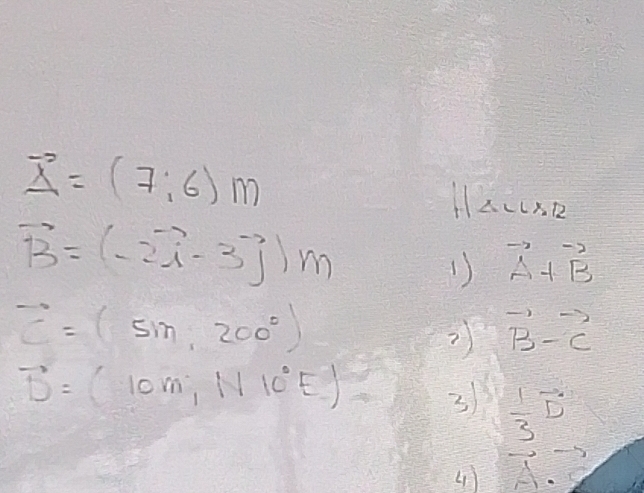 A⃗ = (7; 6) m
B⃗ = (-2i⃗ - 3j⃗) m
C⃗ = (5m; 200°)
D⃗ = (10m; N 10° E)
HALLAR
1) A⃗ + B⃗
2) B⃗ - C⃗
3) 1/3 D⃗
4) A⃗ ·